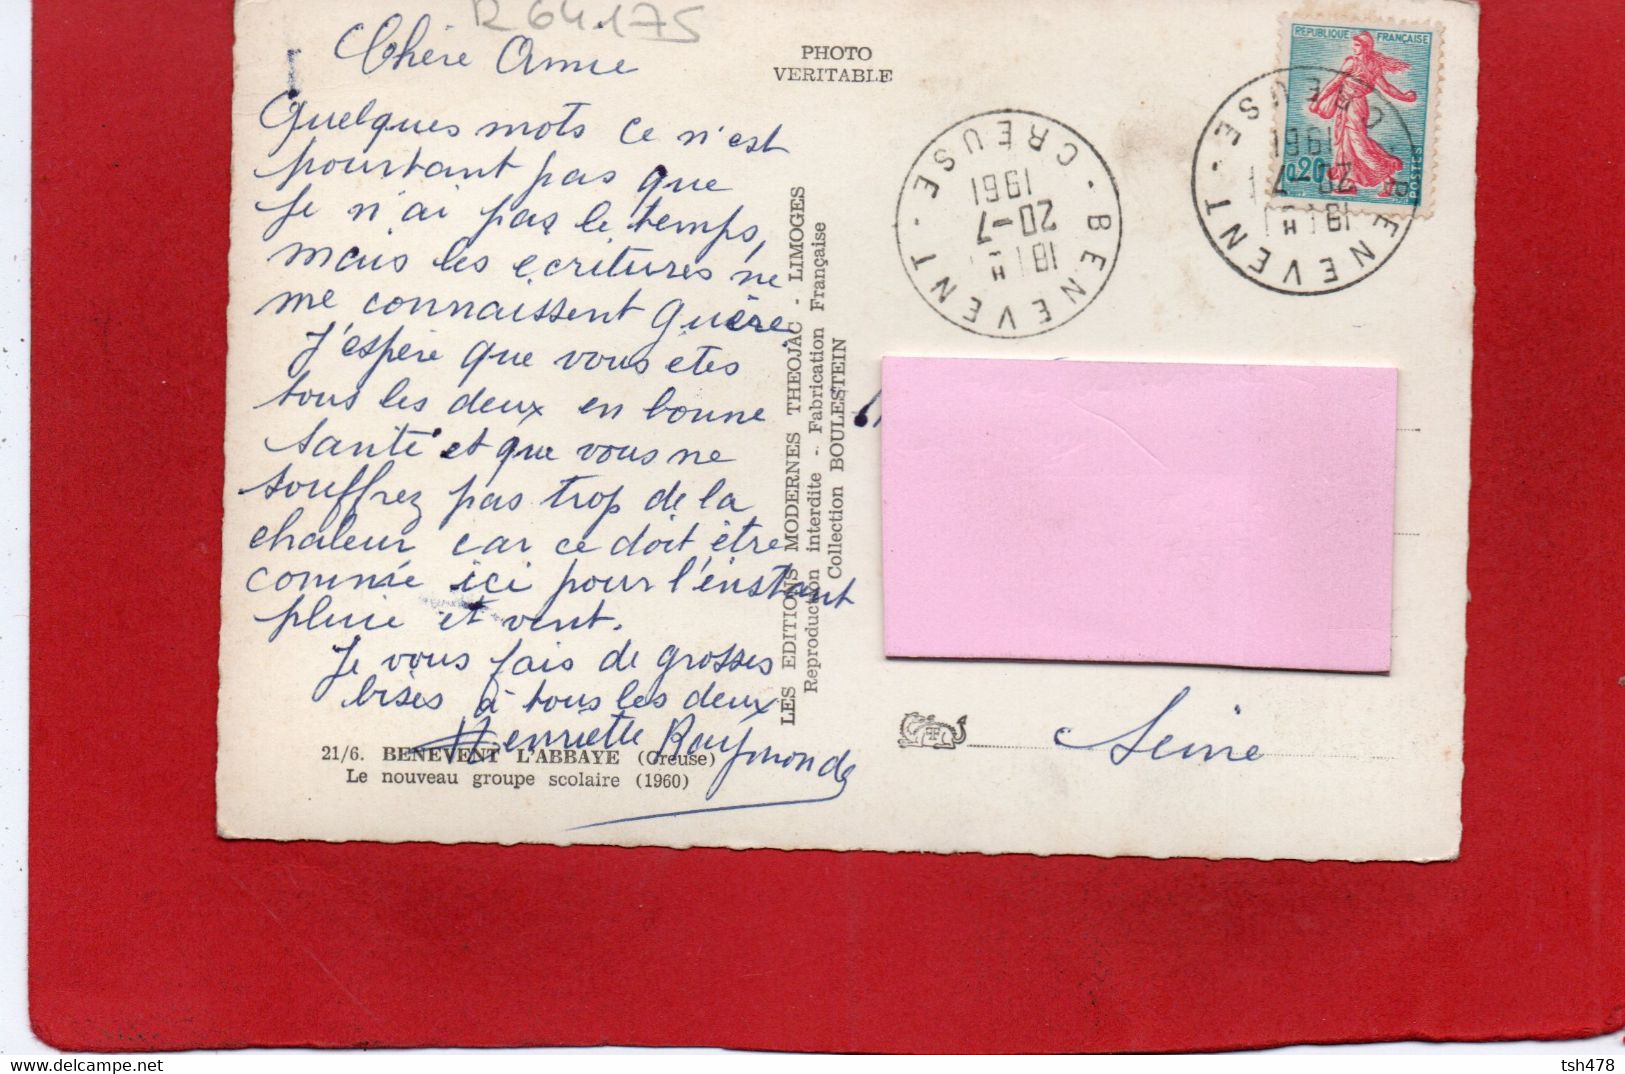 R 64.175
Chère Amie
Quelques mots ce n'est
pourtant pas que
je n'ai pas le temps,
mais les ecritures ne
me connaissent guère.
J'espère que vous etes
tous les deux en bonne
santé et que vous ne
souffrez pas trop de la
chaleur car ce doit être
comme ici pour l'instant
pluie et vent.
Je vous fais de grosses
bises à tous les deux
Henriette Raymonde
21/6. BENEVENT L'ABBAYE (Creuse)
Le nouveau groupe scolaire (1960)
PHOTO
VERITABLE
LES EDITIONS MODERNES THEOJAC - LIMOGES
Reproduction interdite -. Fabrication Française
Collection BOULESTEIN
BENEVENT · CREUSE ·
18 H
20-7
1961
REPUBLIQUE FRANÇAISE
0,20
POSTES
BENEVENT · CREUSE
18 H
20-7
1961
Seine
tsh478